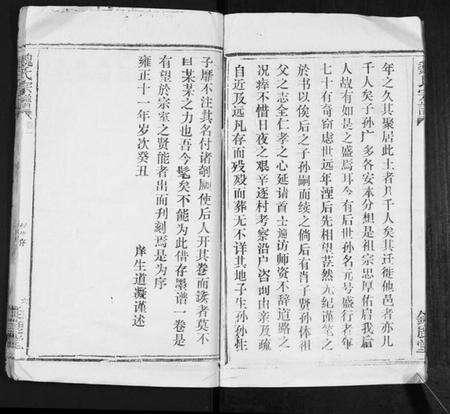 年之久其聚居此土者凡千人矣其迁徙他邑者亦几
千人矣子孙广多各安耒分想是祖宗忠厚佑启我后
人故有如是之盛焉耳今有后世孙名元号盛行者年
七十有奇窃虑世远年湮后先相望茫然无纪谨笔之
於书以俟后之子孙嗣而续之倘后有肖子贤孙体祖
父之志全仁孝之心延请首士遍访师资不辞道路之
况瘁不惜日夜之艰辛逐村考察沿户咨询由亲及疏
自近及远凡存而殁殁而葬无不详其地子生孙孙生
子靡不注其名付诸剞劂使后人开其卷而读者莫不
曰某某之力也吾今髦矣不能为此借存墨谱一卷是
有望於宗室之贤能者出而刋刻焉是为序
雍正十一年岁次癸丑
庠生道凝谨述
魏氏宗谱